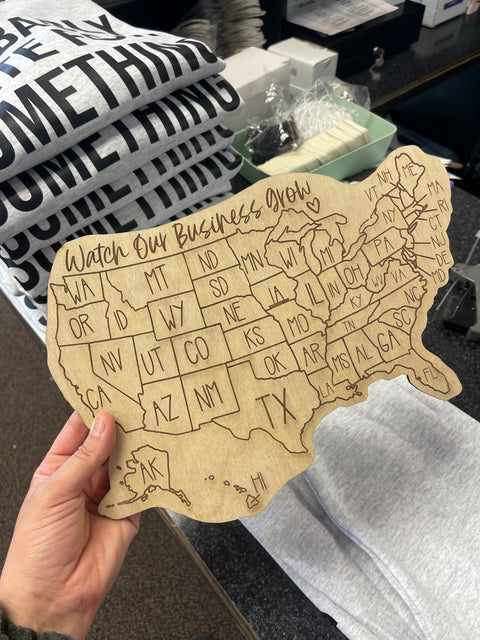 SOMETHING
OMETHING
SOMETHING
Watch Our Business Grow
WA
MT
ND
MN
WI
MI
VT
NH
ME
OR
ID
WY
SD
IA
IL
IN
OH
PA
NY
MA
RI
CT
NJ
DE
MD
NV
UT
CO
NE
KS
MO
KY
WV
VA
NC
CA
AZ
NM
OK
AR
TN
SC
TX
LA
MS
AL
GA
FL
AK
HI